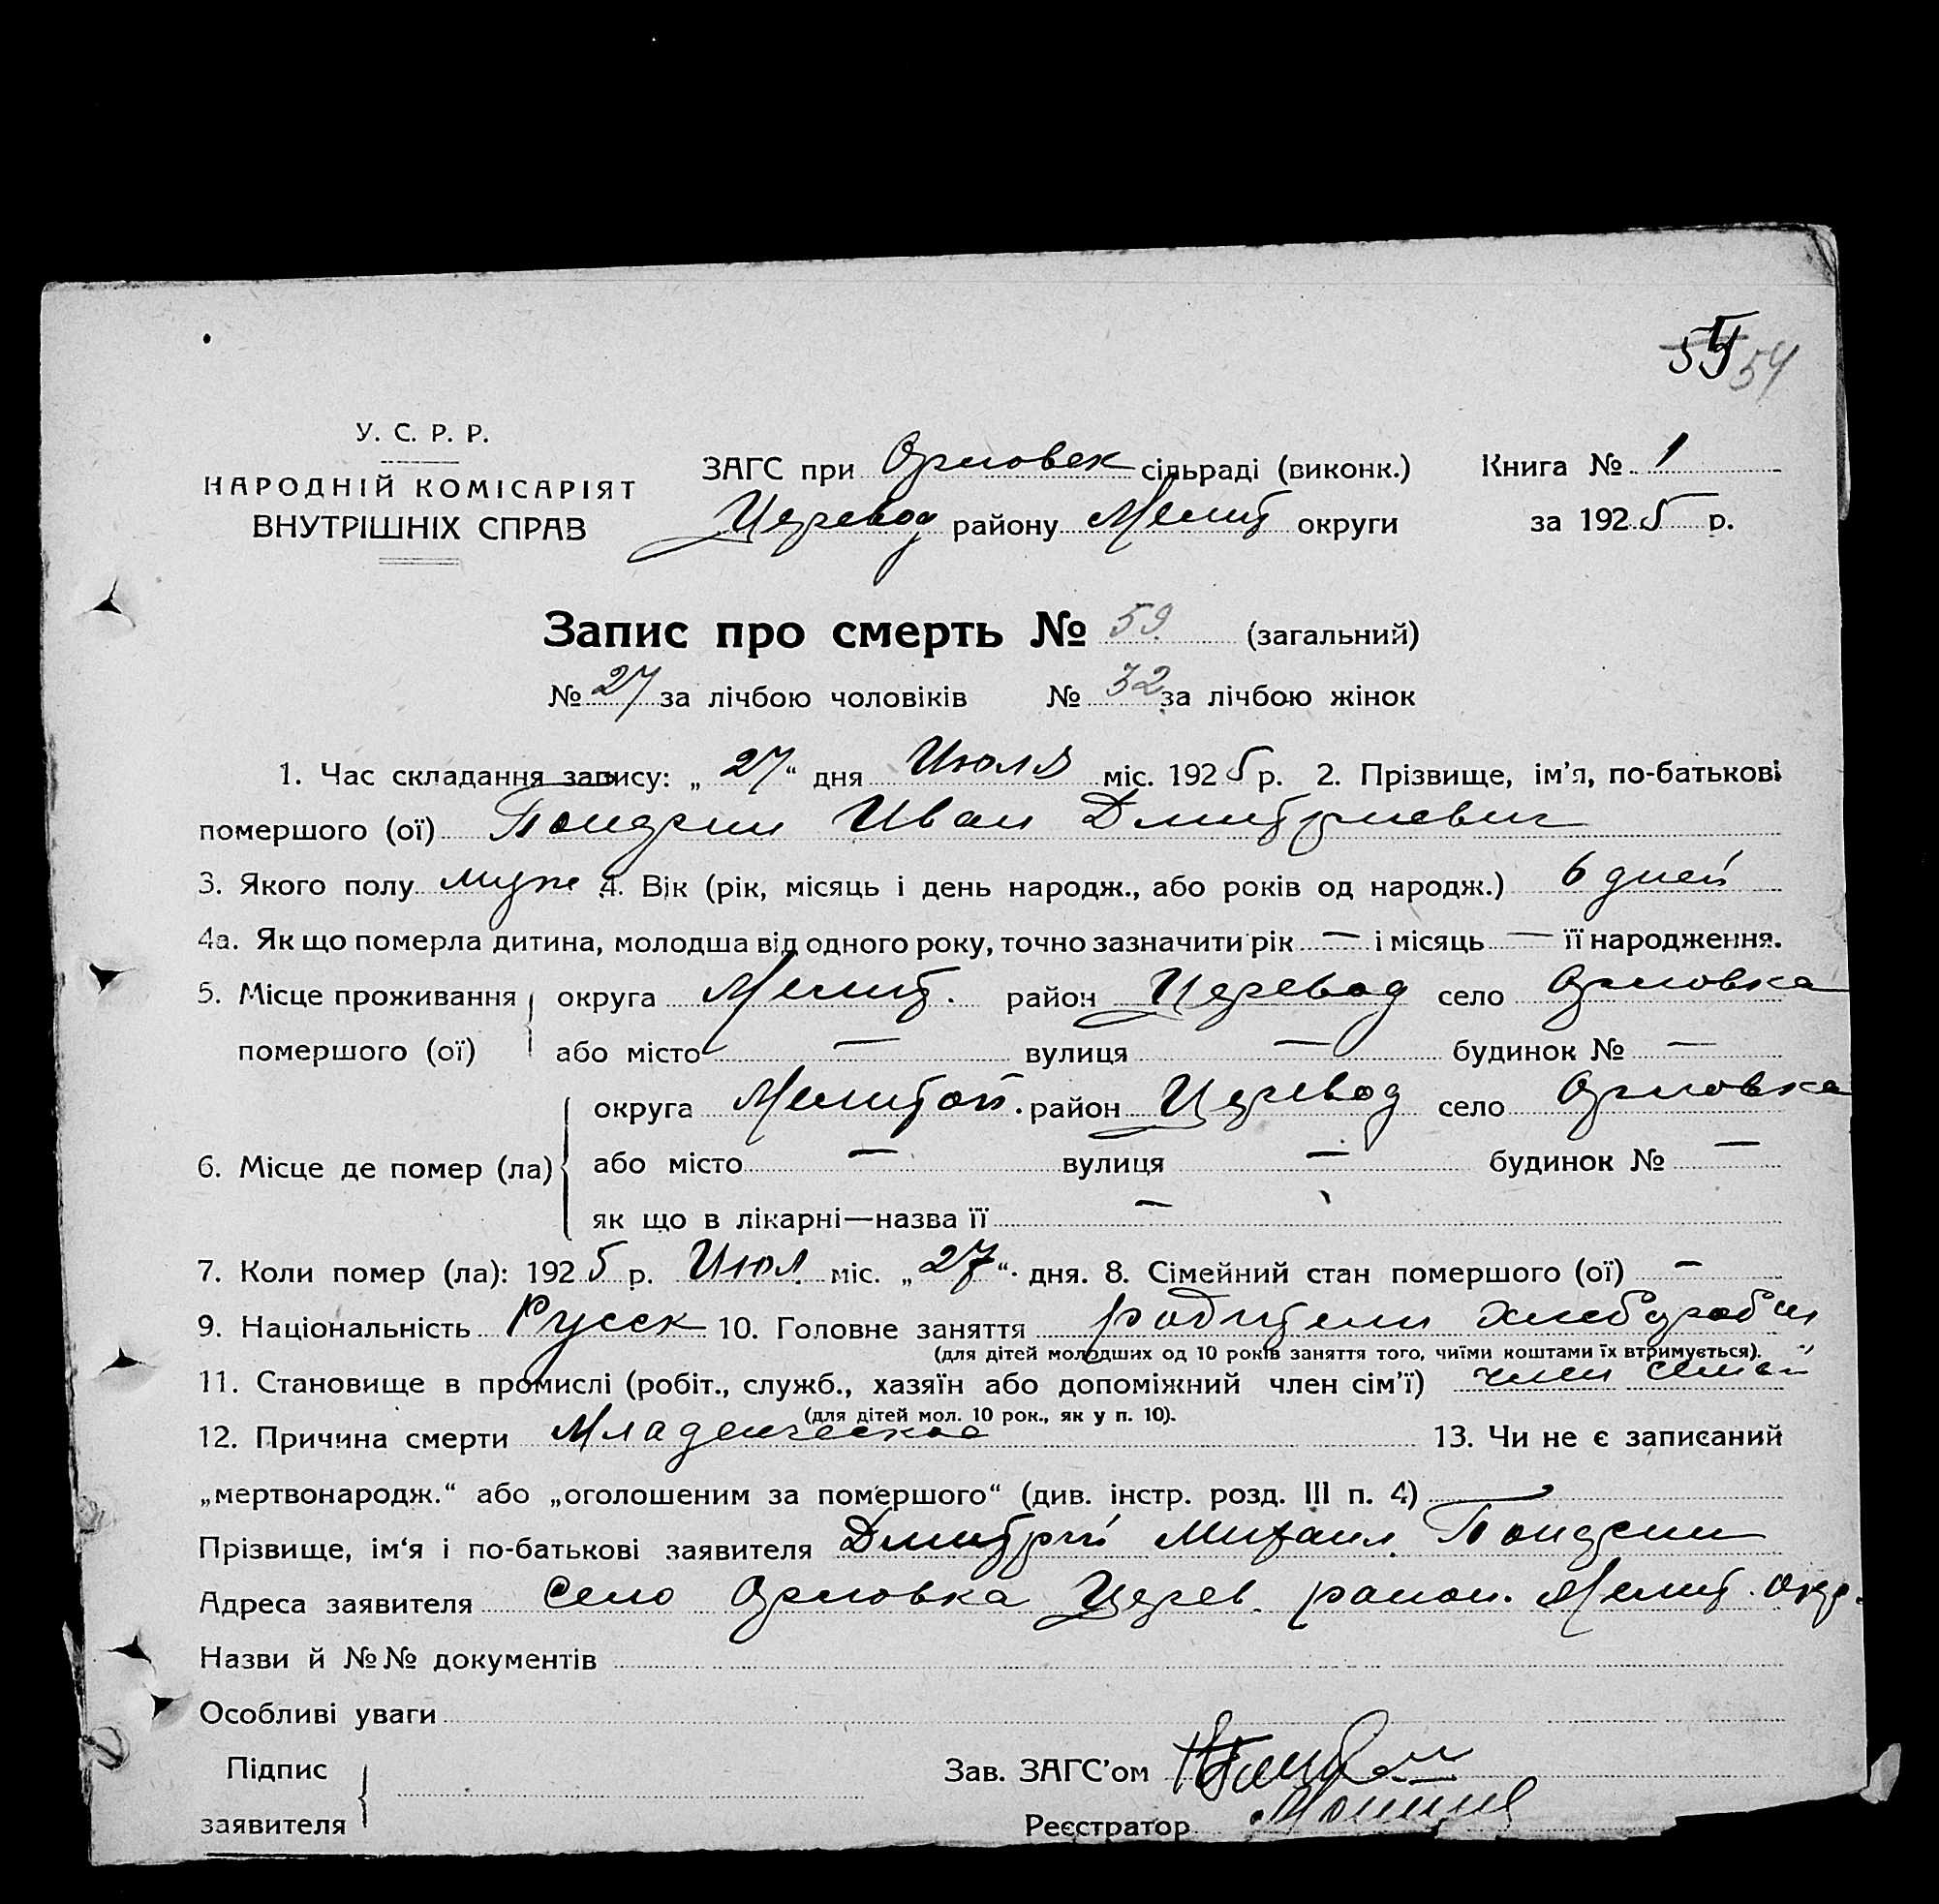 54
У. С. Р. Р.
НАРОДНІЙ КОМІСАРІЯТ
ВНУТРІШНІХ СПРАВ
ЗАГС при Орловск сільраді (виконк.)
Церевод району Мелит округи
Книга № 1
за 1925 р.
Запис про смерть № 59 (загальний)
№ 27 за лічбою чоловіків № 32 за лічбою жінок
1. Час складання запису: „27“ дня Июля міс. 1925 р. 2. Прізвище, ім’я, по-батькові
помершого (ої) Иван Дмитриевич
3. Якого полу муж 4. Вік (рік, місяць і день народж., або років од народж.) 6 дней
4а. Як що померла дитина, молодша від одного року, точно зазначити рік — і місяць — її народження.
5. Місце проживання помершого (ої) округа Мелит. район Церевод село Орловка
або місто — вулиця — будинок № —
6. Місце де помер (ла) округа Мелитоп. район Церевод село Орловка
або місто — вулиця — будинок № —
як що в лікарні—назва її —
7. Коли помер (ла): 1925 р. Июл міс. „27“ дня. 8. Сімейний стан помершого (ої) —
9. Національність Русск 10. Головне заняття родители
(для дітей молодших од 10 років заняття того, чиїми коштами їх втримується).
11. Становище в промислі (робіт., служб., хазяїн або допоміжний член сім’ї) член семьи
(для дітей мол. 10 рок., як у п. 10).
12. Причина смерти Младенческая 13. Чи не є записаний
„мертвонародж.“ або „оголошеним за помершого“ (див. інстр. розд. III п. 4) —
Прізвище, ім‘я і по-батькові заявителя Дмитрий Михаил.
Адреса заявителя Село Орловка Церев. район. Мелит. окр.
Назви й №№ документів
Особливі уваги
Підпис
заявителя
Зав. ЗАГС’ом
Реєстратор